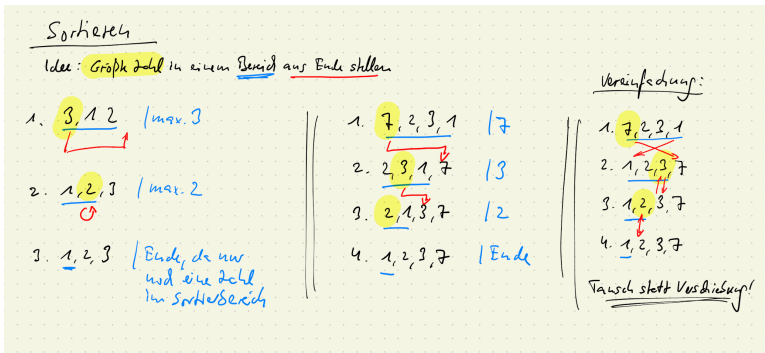 Sortieren
Idee: Größte Zahl in einem Bereich ans Ende stellen
1. 3, 1 2 / max. 3
2. 1, 2, 3 / max. 2
3. 1, 2, 3 / Ende, da nur
noch eine Zahl
im Sortierbereich
1. 7, 2, 3, 1 / 7
2. 2, 3, 1, 7 / 3
3. 2, 1, 3, 7 / 2
4. 1, 2, 3, 7 / Ende
Vereinfachung:
1. 7, 2, 3, 1
2. 1, 2, 3, 7
3. 1, 2, 3, 7
4. 1, 2, 3, 7
Tausch statt Verschiebung!